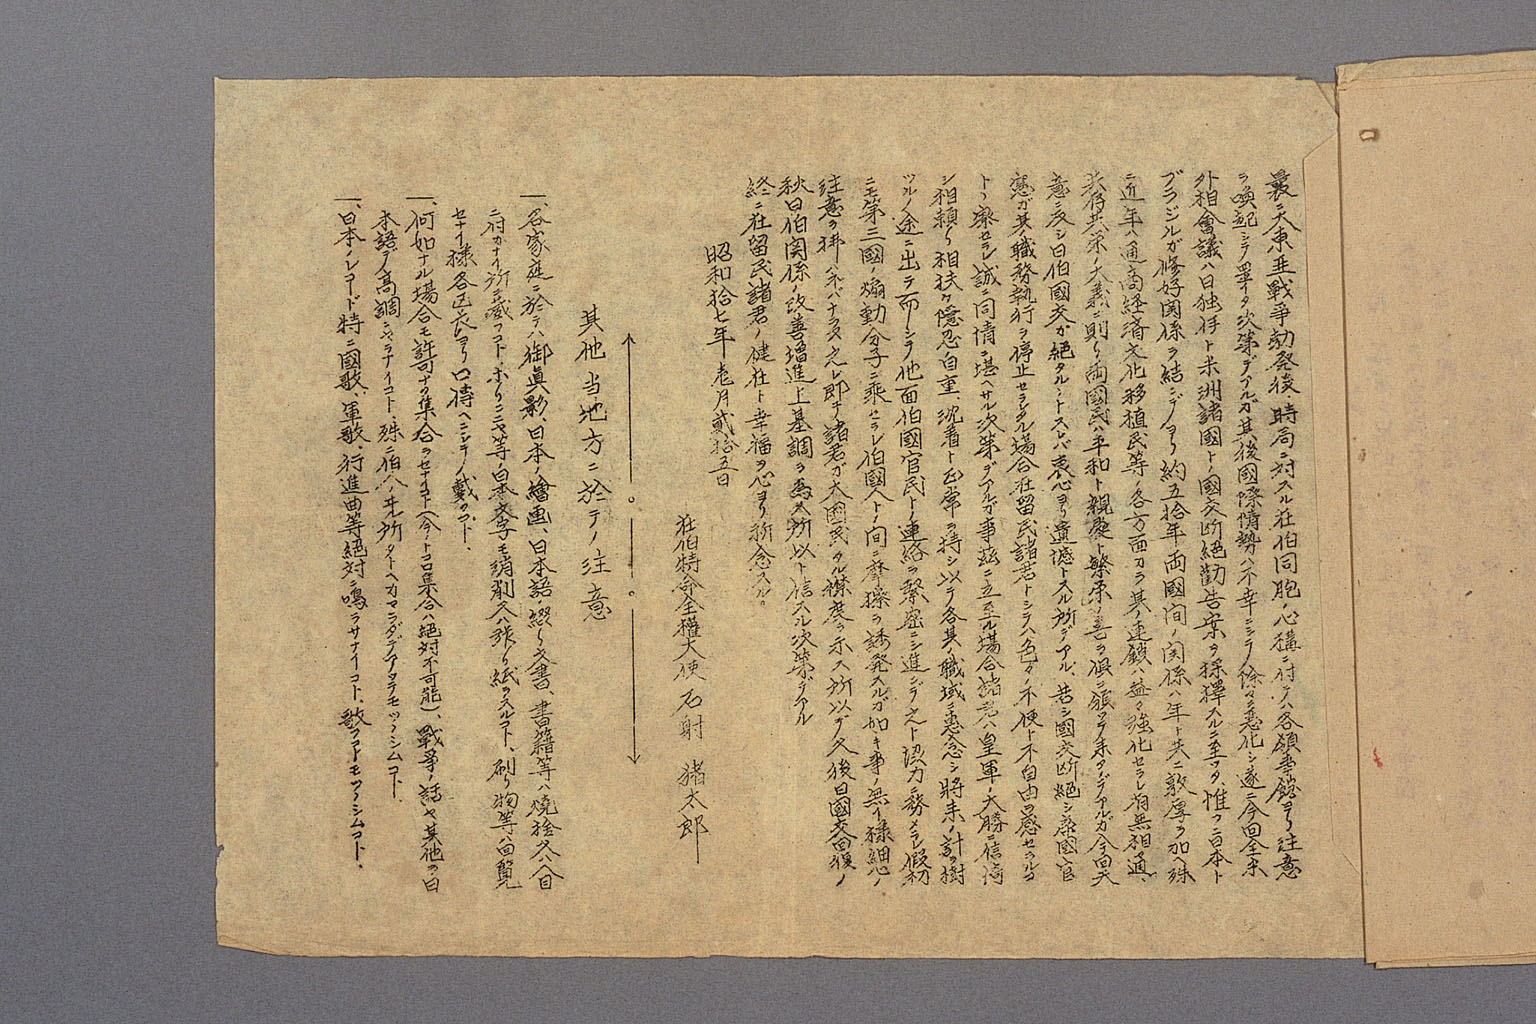 曩ニ大東亜戦争勃発後、時局ニ対スル在伯同胞ノ心構ニ付テハ各領事館ヨリ注意
ヲ喚起シテ置イタ次第デアルガ其後國際情勢ハ不幸ニシテ除々ニ悪化シ遂ニ今回全米
外相會議ハ日独伊ト米洲諸國トノ國交断絶勧告案ヲ採擇スルニ至ツタ、惟フニ日本ト
ブラジルガ修好関係ヲ結ンデヨリ約五拾年両國間ノ関係ハ年ト共ニ敦厚ヲ加ヘ殊
ニ近年ハ通商経済文化移植民等ノ各方面カラ其ノ連鎖ハ益々強化セラレ有無相通、
共存共栄ノ大義ニ則リ両國民ハ平和ト親慶ト繁栄ノ善ヲ倶ニ頒ツテ来タノデアルガ今回天
意ニ反シ日伯國交ガ絶タルヽトスレバ衷心ヨリ遺憾トスル所デアル、若シ國交断絶シ帝國官
憲ガ其ノ職務執行ヲ停止セラレタル場合在留民諸君トシテハ色々ノ不便ト不自由ヲ感セラルヽコ
トヽ察セラレ誠ニ同情ニ堪ヘサル次第デアルガ事茲ニ立至ル場合諸君ハ皇軍ノ大勝ニ信倚
シ相頼リ相扶ケ隠忍自重、沈着ト正常ヲ持シ以テ各其ノ職域ニ専念シ将来ノ計ヲ樹
ツルノ途ニ出テ而シテ他面伯國官民トノ連絡ヲ緊密ニシ進ンデ之ト協力ニ務メラレ假初
ニモ第三國ノ煽動分子ニ乘セラレ伯國人トノ間ニ摩擦ヲ誘発スルガ如キ事ノ無イ様細心ノ
注意ヲ拂ハネバナラヌ之レ即チ諸君ガ大國民タル襟度ヲ示ス所以デ又後日國交回復ノ
秋日伯関係ノ改善増進上基調ヲ為ス所以ト信スル次第デアル
終ニ在留民諸君ノ健在ト幸福ヲ心ヨリ祈念スル。
昭和拾七年壱月貳拾五日
在伯特命全權大使 石射 猪太郎
其他当地方ニ於テノ注意
一、各家庭ニ於テハ御眞影日本ノ繪画、日本語ノ綴リ文書、書籍等ハ焼捨又ハ人目
ニ付カナイ所ニ蔵フコト、ホリニヤ等ノ日本文字モ消削又ハ張リ紙ヲスルコト、刷リ物等ハ回覧
セナイ様各区長ヨリ口傳ヘニシテノ戴クコト、
一、何如ナル場合モ許可ナク集合ヲセナイコト(今ノトコロ集合ハ絶対不可能)、戰爭ノ話ヤ其他ヲ日
本語デノ高調ニシヤヾラナイコト、殊ニ伯人ノ井ル所
一、日本ノレコード特ニ國歌、軍歌、行進曲等絶対ニ鳴ラサナイコト、歌フコトモツヽシムコト、